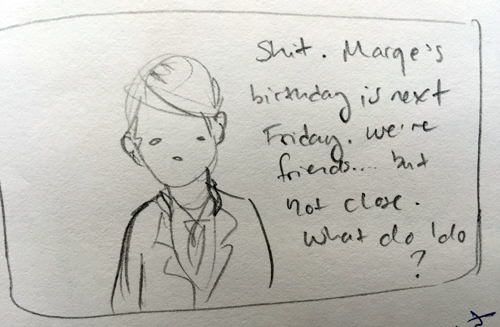 Shit. Marge's
birthday is next
Friday. we're
friends.... but
not close.
what do I do
?